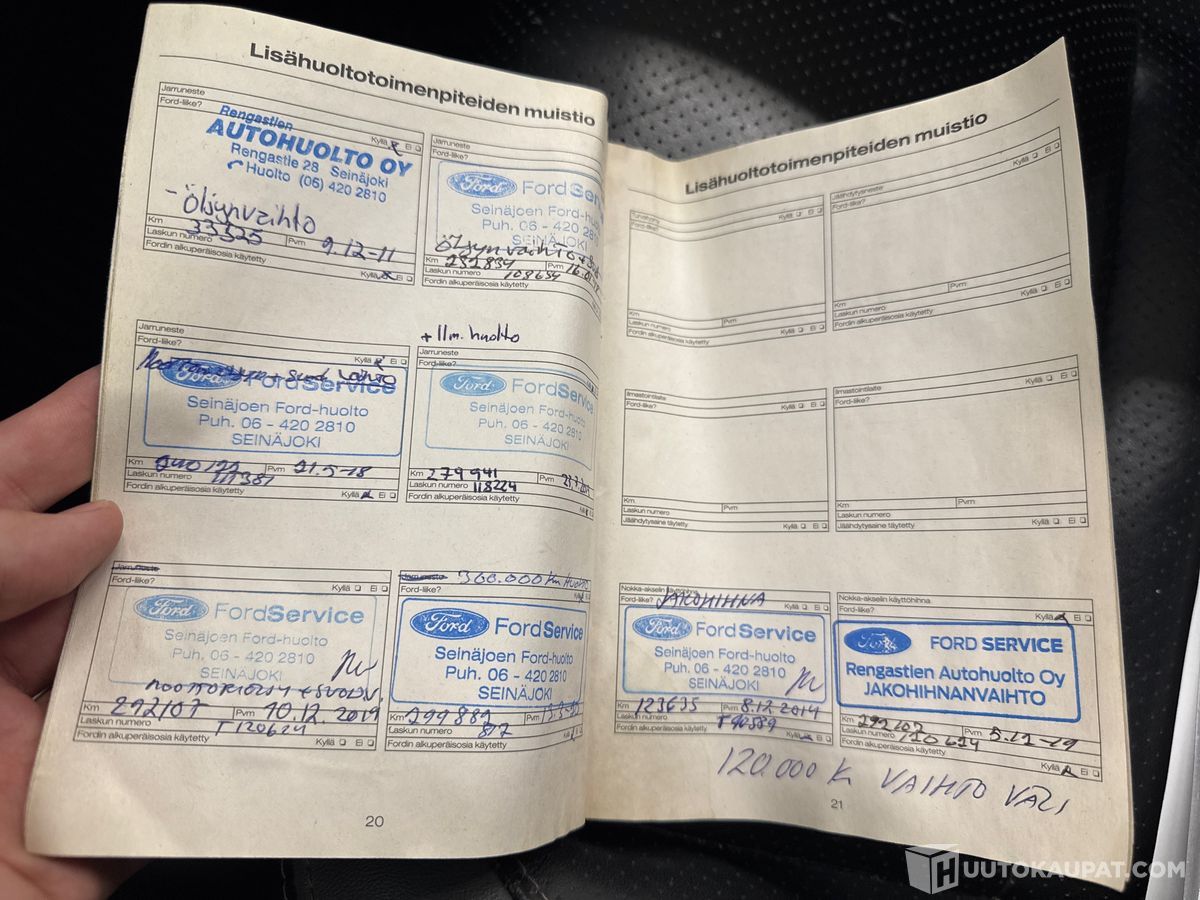 Lisähuoltotoimenpiteiden muistio
Jarruneste
Ford-liike?
Kyllä Ei
Rengastien
AUTOHUOLTO OY
Rengastie 28 Seinäjoki
Huolto (06) 420 2810
- Öljynvaihto
Km 33325
Laskun numero Pvm 9.12-11
Fordin alkuperäisosia käytetty
Kyllä Ei
Jarruneste
Ford-liike?
Ford FordService
Seinäjoen Ford-huolto
Puh. 06 - 420 2810
SEINÄJOKI
Öljynvaihto +
Km 232834 Pvm 16.
Laskun numero 108654
Fordin alkuperäisosia käytetty
Jarruneste
Ford-liike?
Kyllä Ei
Ford FordService
Seinäjoen Ford-huolto
Puh. 06 - 420 2810
SEINÄJOKI
Km Pvm 21.5-18
Laskun numero 111381
Fordin alkuperäisosia käytetty
Kyllä Ei
+ Ilm. huolto
Jarruneste
Ford-liike?
Ford FordService
Seinäjoen Ford-huolto
Puh. 06 - 420 2810
SEINÄJOKI
Km 279941 Pvm
Laskun numero 118224
Fordin alkuperäisosia käytetty
Jarruneste
Ford-liike?
Kyllä Ei
Ford FordService
Seinäjoen Ford-huolto
Puh. 06 - 420 2810
SEINÄJOKI
Km 292107 Pvm 10.12.2019
Laskun numero T 120614
Fordin alkuperäisosia käytetty Kyllä Ei
Jarruneste 300.000 Km HUOLTO
Ford-liike?
Ford FordService
Seinäjoen Ford-huolto
Puh. 06 - 420 2810
SEINÄJOKI
Km 299881 Pvm
Laskun numero
Fordin alkuperäisosia käytetty
20
Lisähuoltotoimenpiteiden muistio
Ford-liike?
Kyllä Ei
Km Pvm
Laskun numero
Fordin alkuperäisosia käytetty
Kyllä Ei
Jäähdytysneste
Ford-liike?
Kyllä Ei
Km Pvm
Laskun numero
Fordin alkuperäisosia käytetty
Kyllä Ei
Ilmastointilaite
Ford-liike?
Kyllä Ei
Km Pvm
Laskun numero
Jäähdytysaine täytetty
Kyllä Ei
Ilmastointilaite
Ford-liike?
Kyllä Ei
Km Pvm
Laskun numero
Jäähdytysaine täytetty
Kyllä Ei
Nokka-akselin käyttöhihna
Ford-liike? JAKOHIHNA
Kyllä Ei
Ford FordService
Seinäjoen Ford-huolto
Puh. 06 - 420 2810
SEINÄJOKI
Km 123635 Pvm 8.12.2014
Laskun numero T 90589
Fordin alkuperäisosia käytetty
Kyllä Ei
Nokka-akselin käyttöhihna
Ford-liike?
Kyllä Ei
Ford FORD SERVICE
Rengastien Autohuolto Oy
JAKOHIHNANVAIHTO
Km 292107 Pvm 5.12-19
Laskun numero 120614
Fordin alkuperäisosia käytetty
Kyllä Ei
120.000 K VAIHTO VÄLI
21
HUUTOKAUPAT.COM